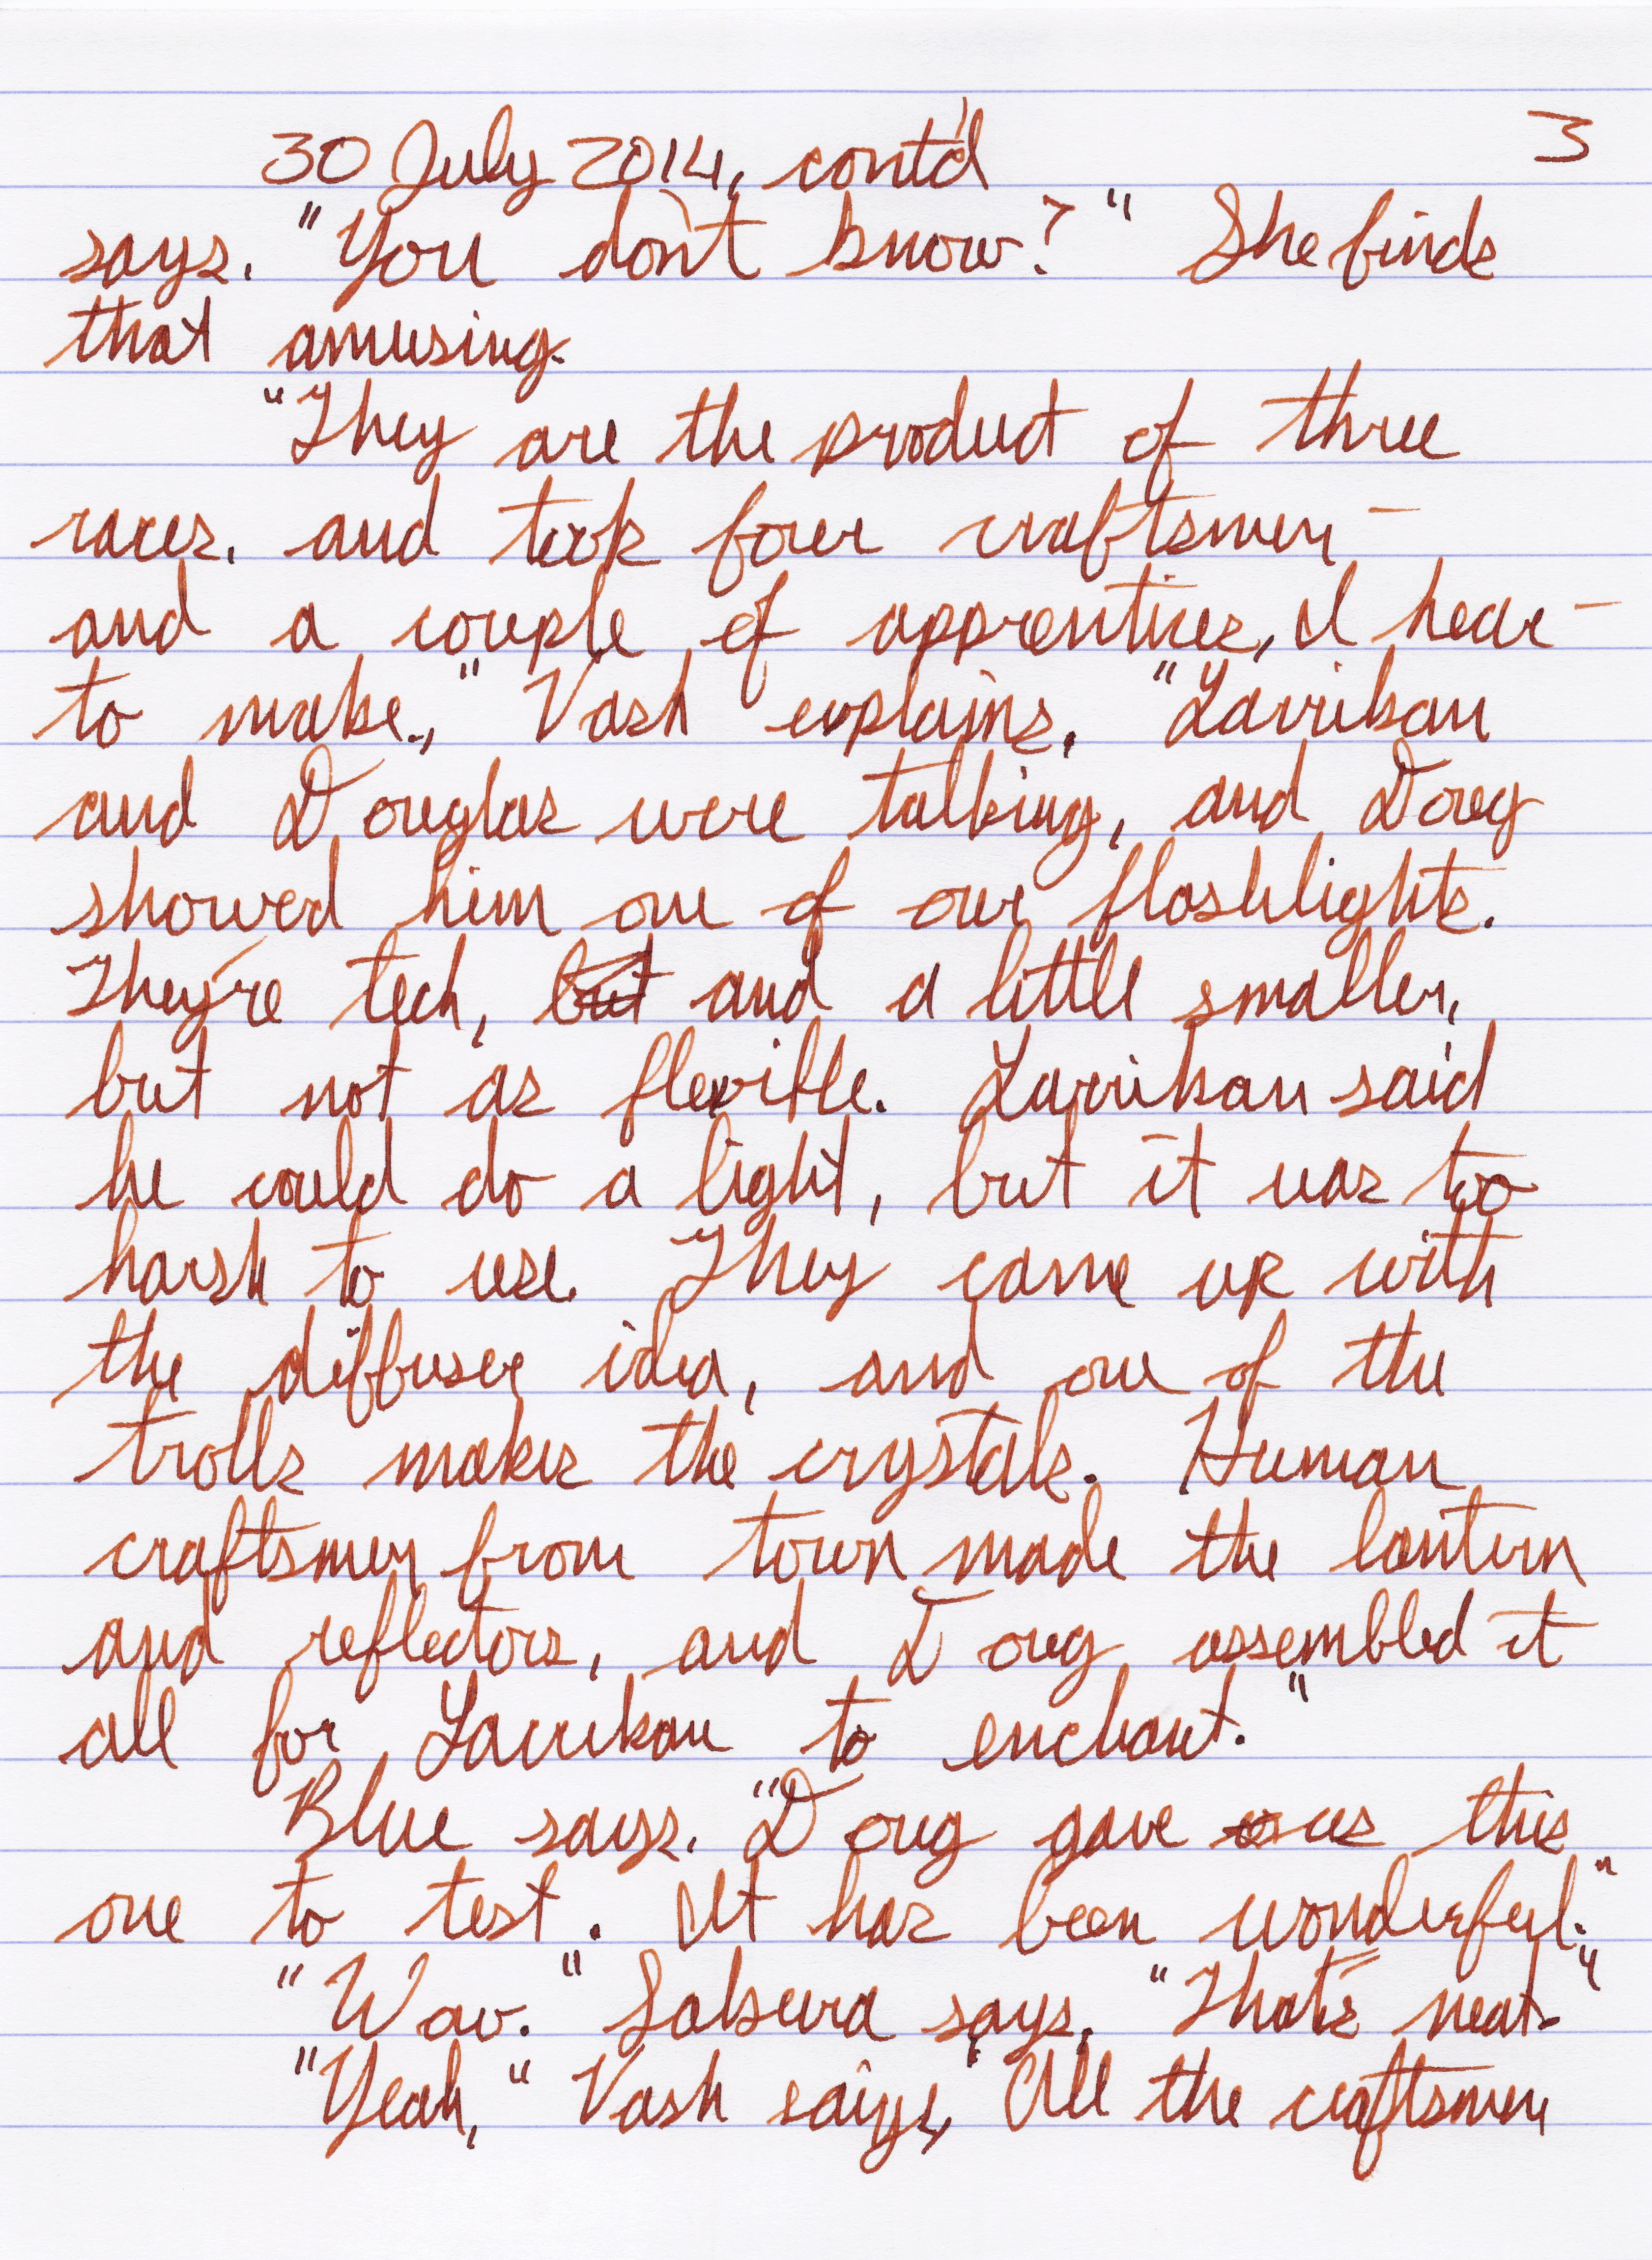 30 July 2014, cont'd 3
says. "You don't know?" She finds
that amusing.
"They are the product of three
races, and took four craftsmen –
and a couple of apprentices, I hear –
to make.," Vash explains. "Larrikan
and Douglas were talking, and Doug
showed him one of our flashlights.
They're tech, but and a little smaller,
but not as flexible. Larrikan said
he could do a light, but it was too
harsh to use. They came up with
the diffuser idea, and one of the
trolls makes the crystals. Human
craftsmen from town made the lantern
and reflectors, and Doug assembled it
all for Larrikan to enchant."
Blue says. "Doug gave us this
one to test. It has been wonderful."
"Wow." Salsura says. "That's neat."
"Yeah," Vash says, "All the craftsmen